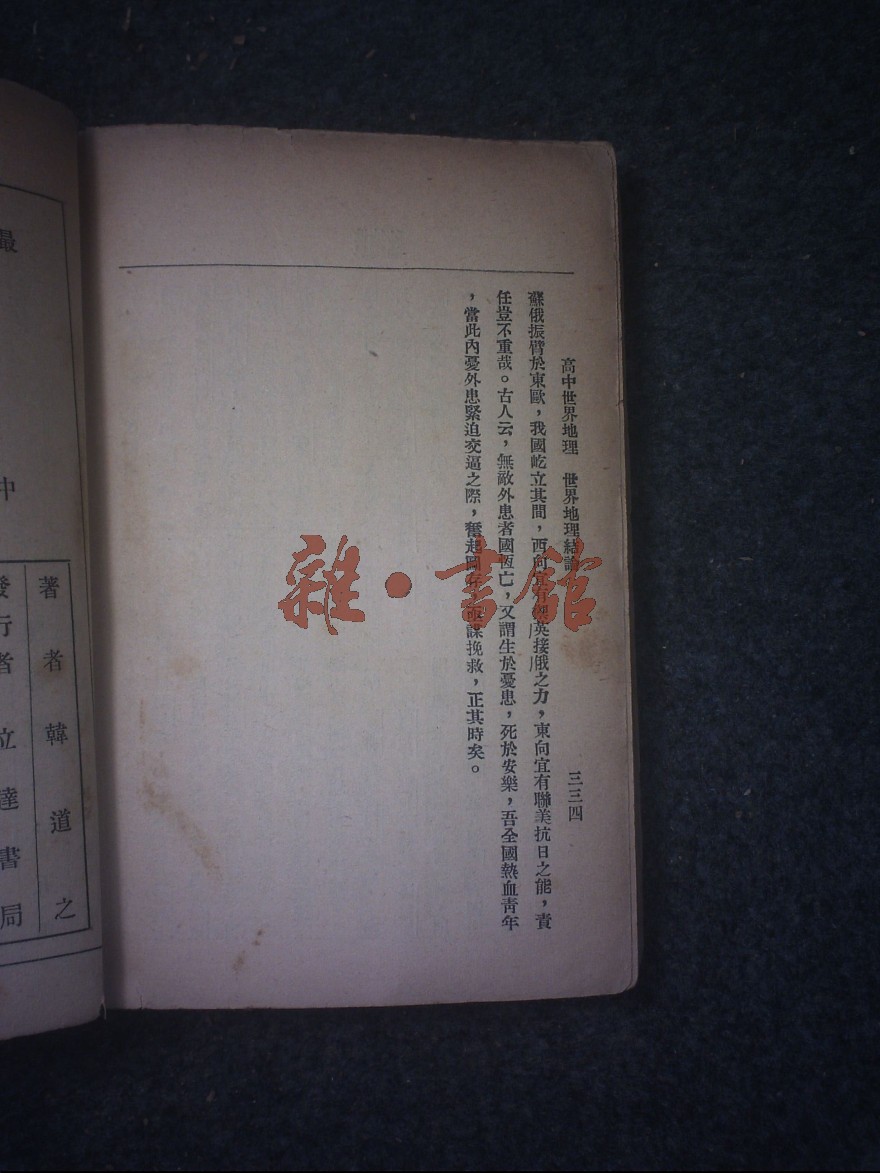 高中世界地理　世界地理結論
三三四
蘇俄振臂於東歐，我國屹立其間，西向宜有英接俄之力，東向宜有聯美抗日之能，責
任豈不重哉。古人云，無敵外患者國恆亡，又謂生於憂患，死於安樂，吾全國熱血靑年
，當此內憂外患緊迫交逼之際，奮起圖存，謀挽救，正其時矣。
雜·書館
著者韓道之
發行者立達書局
最中